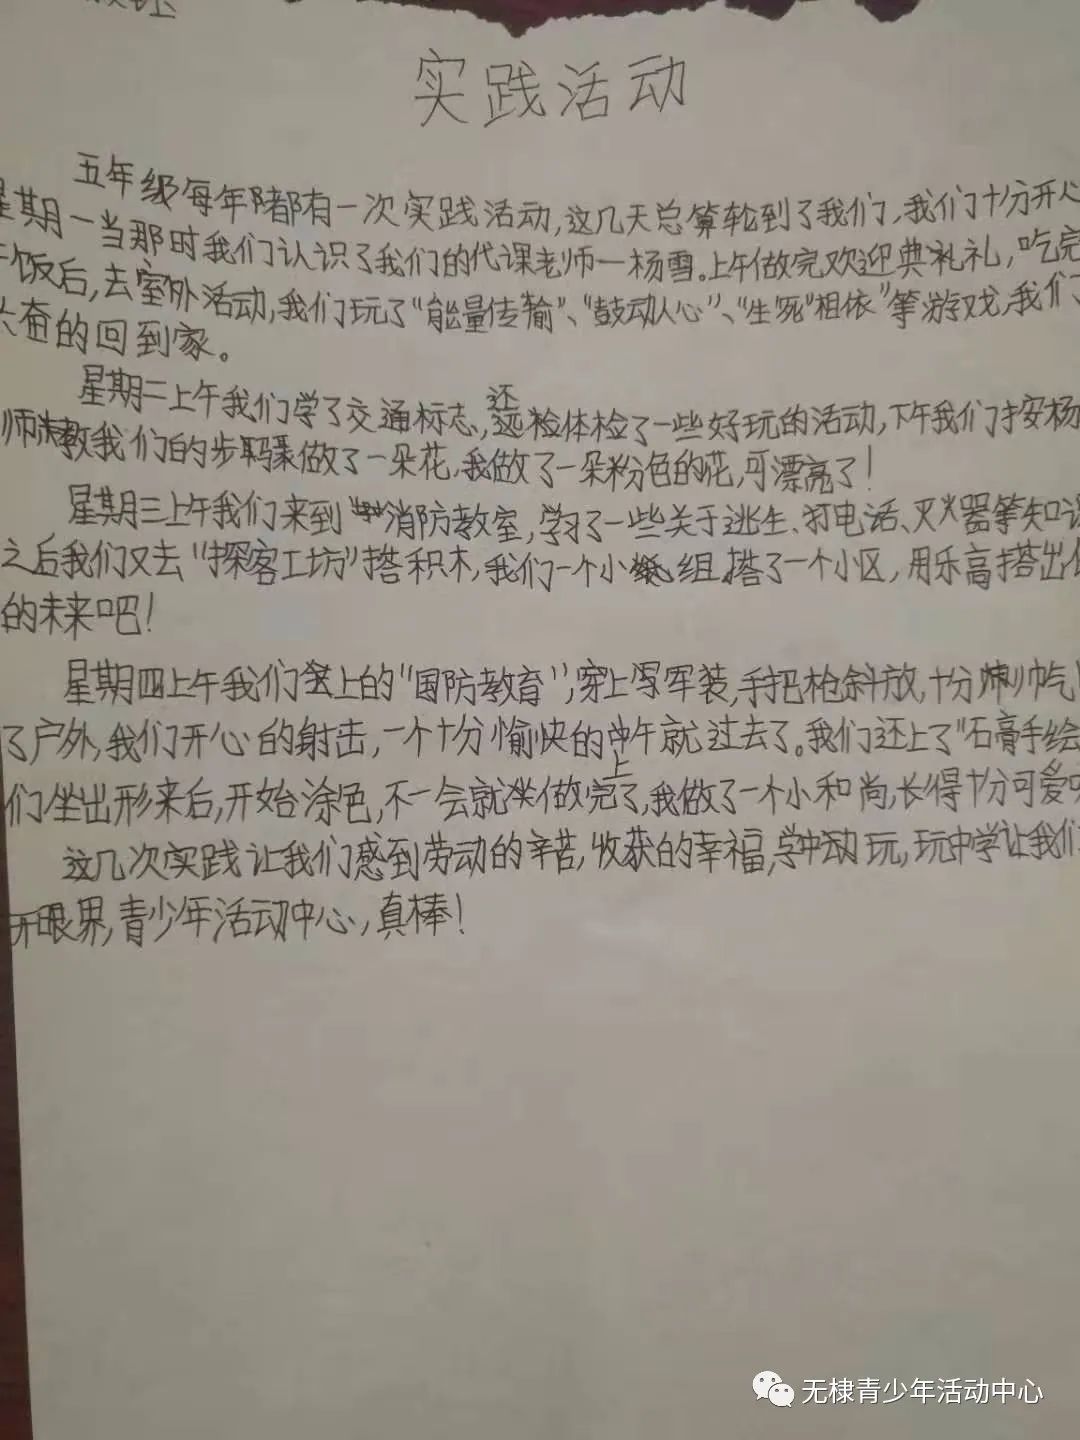 实践活动
五年级每年都有一次实践活动,这几天总算轮到了我们,我们十分开心
星期一当那时我们认识了我们的代课老师一杨雪.上午做完欢迎典礼礼,吃完
午饭后,去室外活动,我们玩了“能量传输”、“鼓动人心”、“生死”相依”等游戏,我们
奋的回到家。
星期二上午我们学了交通标志,还检体检了一些好玩的活动,下午我们按杨
师教我们的步骤做了一朵花,我做了一朵粉色的花,可漂亮了!
星期三上午我们来到消防教室,学习了一些关于逃生、打电话、灭火器等知识
之后我们又去“探客工坊”搭积木,我们一个小组,搭了一个小区,用乐高搭出
的未来吧!
星期四上午我们上的“国防教育”,穿上军装,手把枪斜放,十分帅气!
了户外,我们开心的射击,一个十分愉快的上午就过去了。我们还上了“石膏手绘
们坐出形来后,开始涂色,不一会就做完了,我做了一个小和尚,长得十分可爱
这几次实践让我们感到劳动的辛苦,收获的幸福,学中玩,玩中学让我们
开眼界,青少年活动中心,真棒!
无棣青少年活动中心